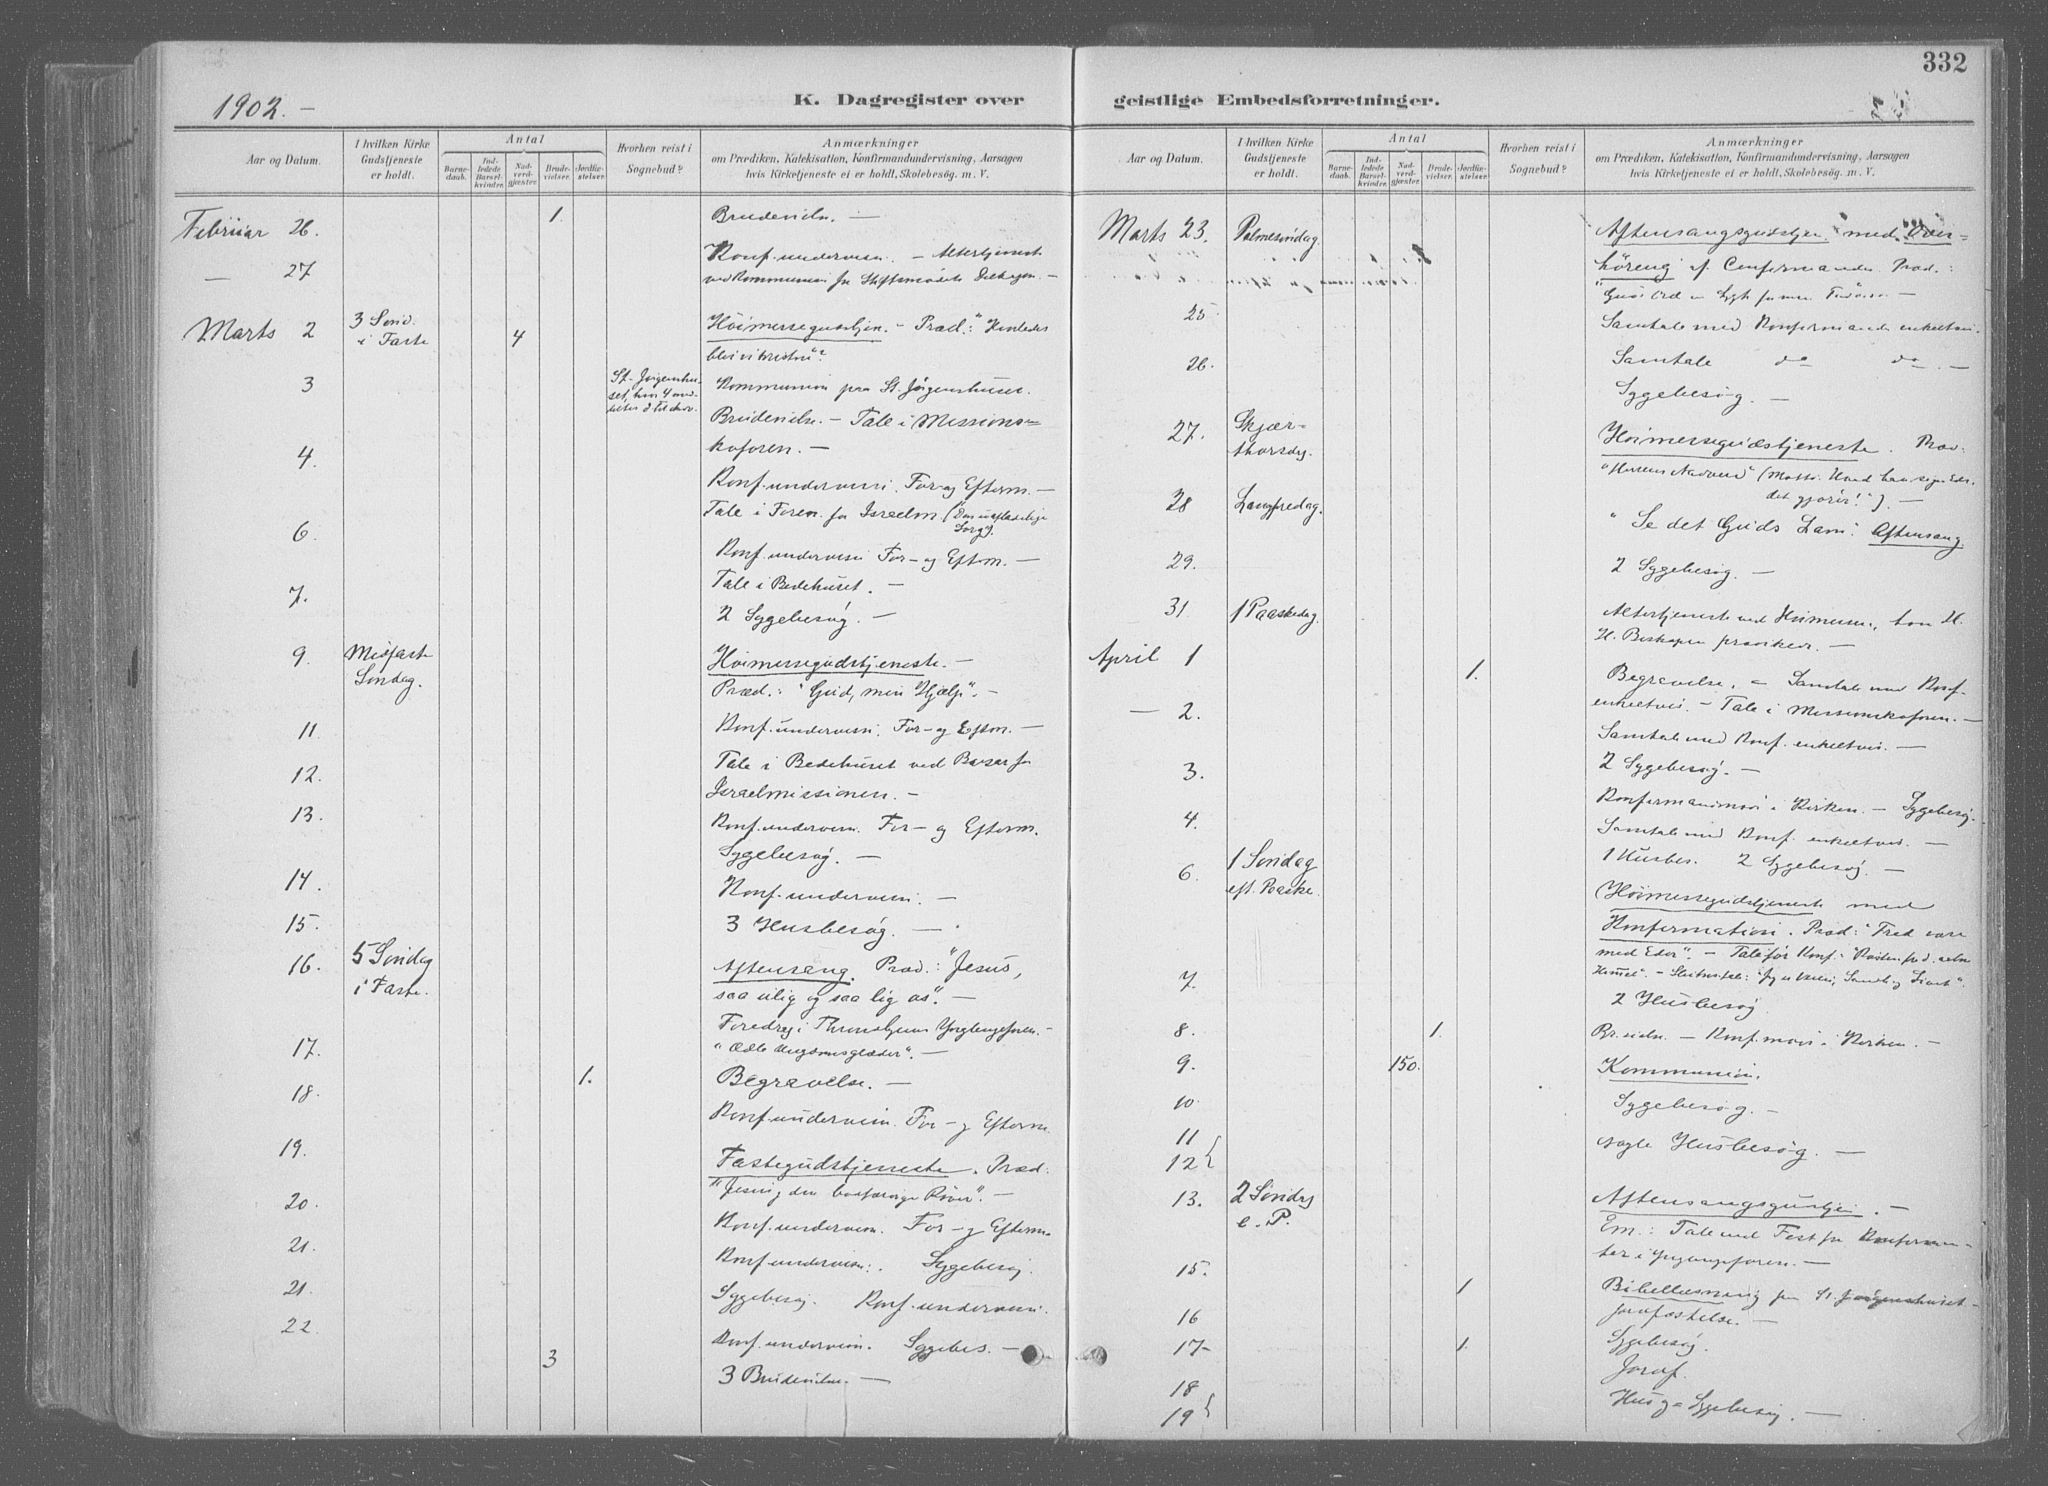 332
1902. -
K. Dagregister over geistlige Embedsforretninger.
Aar og Datum.
I hvilken Kirke Gudstjeneste er holdt.
Antal
Barnedaab.
Indledede Barselkvinder.
Nadverdgjester.
Brudevielser.
Jordfæstelser.
Hvorhen reist i Sognebud?
Anmærkninger
om Prædiken, Katekisation, Konfirmandundervisning, Aarsagen
hvis Kirketjeneste ei er holdt, Skolebesøg. m. V.
Februar 26. 1. Brudevielse. —
— 27 Konf. undervisn. — Altertjeneste
ved Kommunion for Stiftsmødets
Marts 2 3 Sønd. i Faste 4 Høimessegudstjen. — Præd.: "Hvorledes
blev vi kristne"?
3 St. Jørgenshuset, Kommunion paa St. Jørgenshuset.
Brudevielse. — Tale i Missions-
4. kvforen. —
Konf. undervisn. For- og Efterm. —
Tale i Foren. for Israelm.
6.
Konf. undervisn For- og Efterm. —
7. Tale i Bedehuset. —
2 Sygebesøg. —
9. Midfaste Søndag. Høimessegudstjeneste. —
Præd.: "Gud, min Hjælp". —
11 Konf. undervisn. For- og Efterm. —
12. Tale i Bedehuset ved Basar for
Israelmissionen. —
13. Konf. undervisn. For- og Efterm.
Sygebesøg. —
14. Konf. undervisn. —
15. 3 Husbesøg. —
16. 5 Søndag i Faste. Aftensang. Præd.: "Jesus,
saa ulig og saa lig os". —
Foredrag i Thronhjems Ynglingeforen. —
17. "Ædle Ungdomsglæder". —
18. 1. Begravelse. —
Konf. undervisn. For- og Efterm.
19. Fastegudstjeneste. Præd.
"Jesus og den bodfærdige Røver". —
20. Konf. undervisn. For- og Efterm.
21. Konf. undervisn. Sygebesøg.
21. Sygebesøg. Konf. undervisn.
22. Konf. undervisn. Sygebes. —
3 3 Brudevielser. —
Aar og Datum.
I hvilken Kirke Gudstjeneste er holdt.
Antal
Barnedaab.
Indledede Barselkvinder.
Nadverdgjester.
Brudevielser.
Jordfæstelser.
Hvorhen reist i Sognebud?
Anmærkninger
om Prædiken, Katekisation, Konfirmandundervisning, Aarsagen
hvis Kirketjeneste ei er holdt, Skolebesøg. m. V.
Marts 23. Palmesøndag. Aftensangsgudstjen. med Over-
höring af Confirmander. Præd.:
25 Samtale med Konfirmander enkeltvis.
26. Samtale do do. —
Sygebesøg. —
27. Skjærthorsdag. Høimessegudstjeneste. Præd.
"Herrens Nadverd" (Motto: Hvad han siger Eder,
det gjører!"). —
28 Langfredag. "Se det Guds Lam". Aftensang
29. 2 Sygebesøg. —
31 1 Paaskedag. Altertjeneste ved Høimessen, hvor H.
H. Biskopen prædiker. —
April 1 1. Begravelse. — Samtale med Konf.
enkeltvis. — Tale i Missionskvforen. —
— 2. Samtale med Konf. enkeltvis. —
3. 2 Sygebesøg. —
Konfirmandmøde i Kirken. — Sygebesøg.
4. Samtale med Konf. enkeltvis. —
1 Husbes. 2 Sygebesøg. —
6. 1 Søndag eft. Paaske. Høimessegudstjeneste med
Konfirmation. Præd.: "Fred være
med Eder". — Tale for Konf.
7. 2 Husbesøg.
8. 1. Brudevielse. — Konf. møde i Kirken. —
9. 150. Kommunion.
10. Sygebesøg. —
11
12 nogle Husbesøg. —
13. 2 Søndag e. P. Aftensangsgudstjen. —
Em.: Tale ved Fest for Konfirman-
ter i Ynglingeforen. —
15. 1 Bibellæsning paa St. Jørgenshuset
Jordfæstelse. —
16 Sygebesøg.
17 1. Jordf.
18
19 Hus og Sygebesøg. —